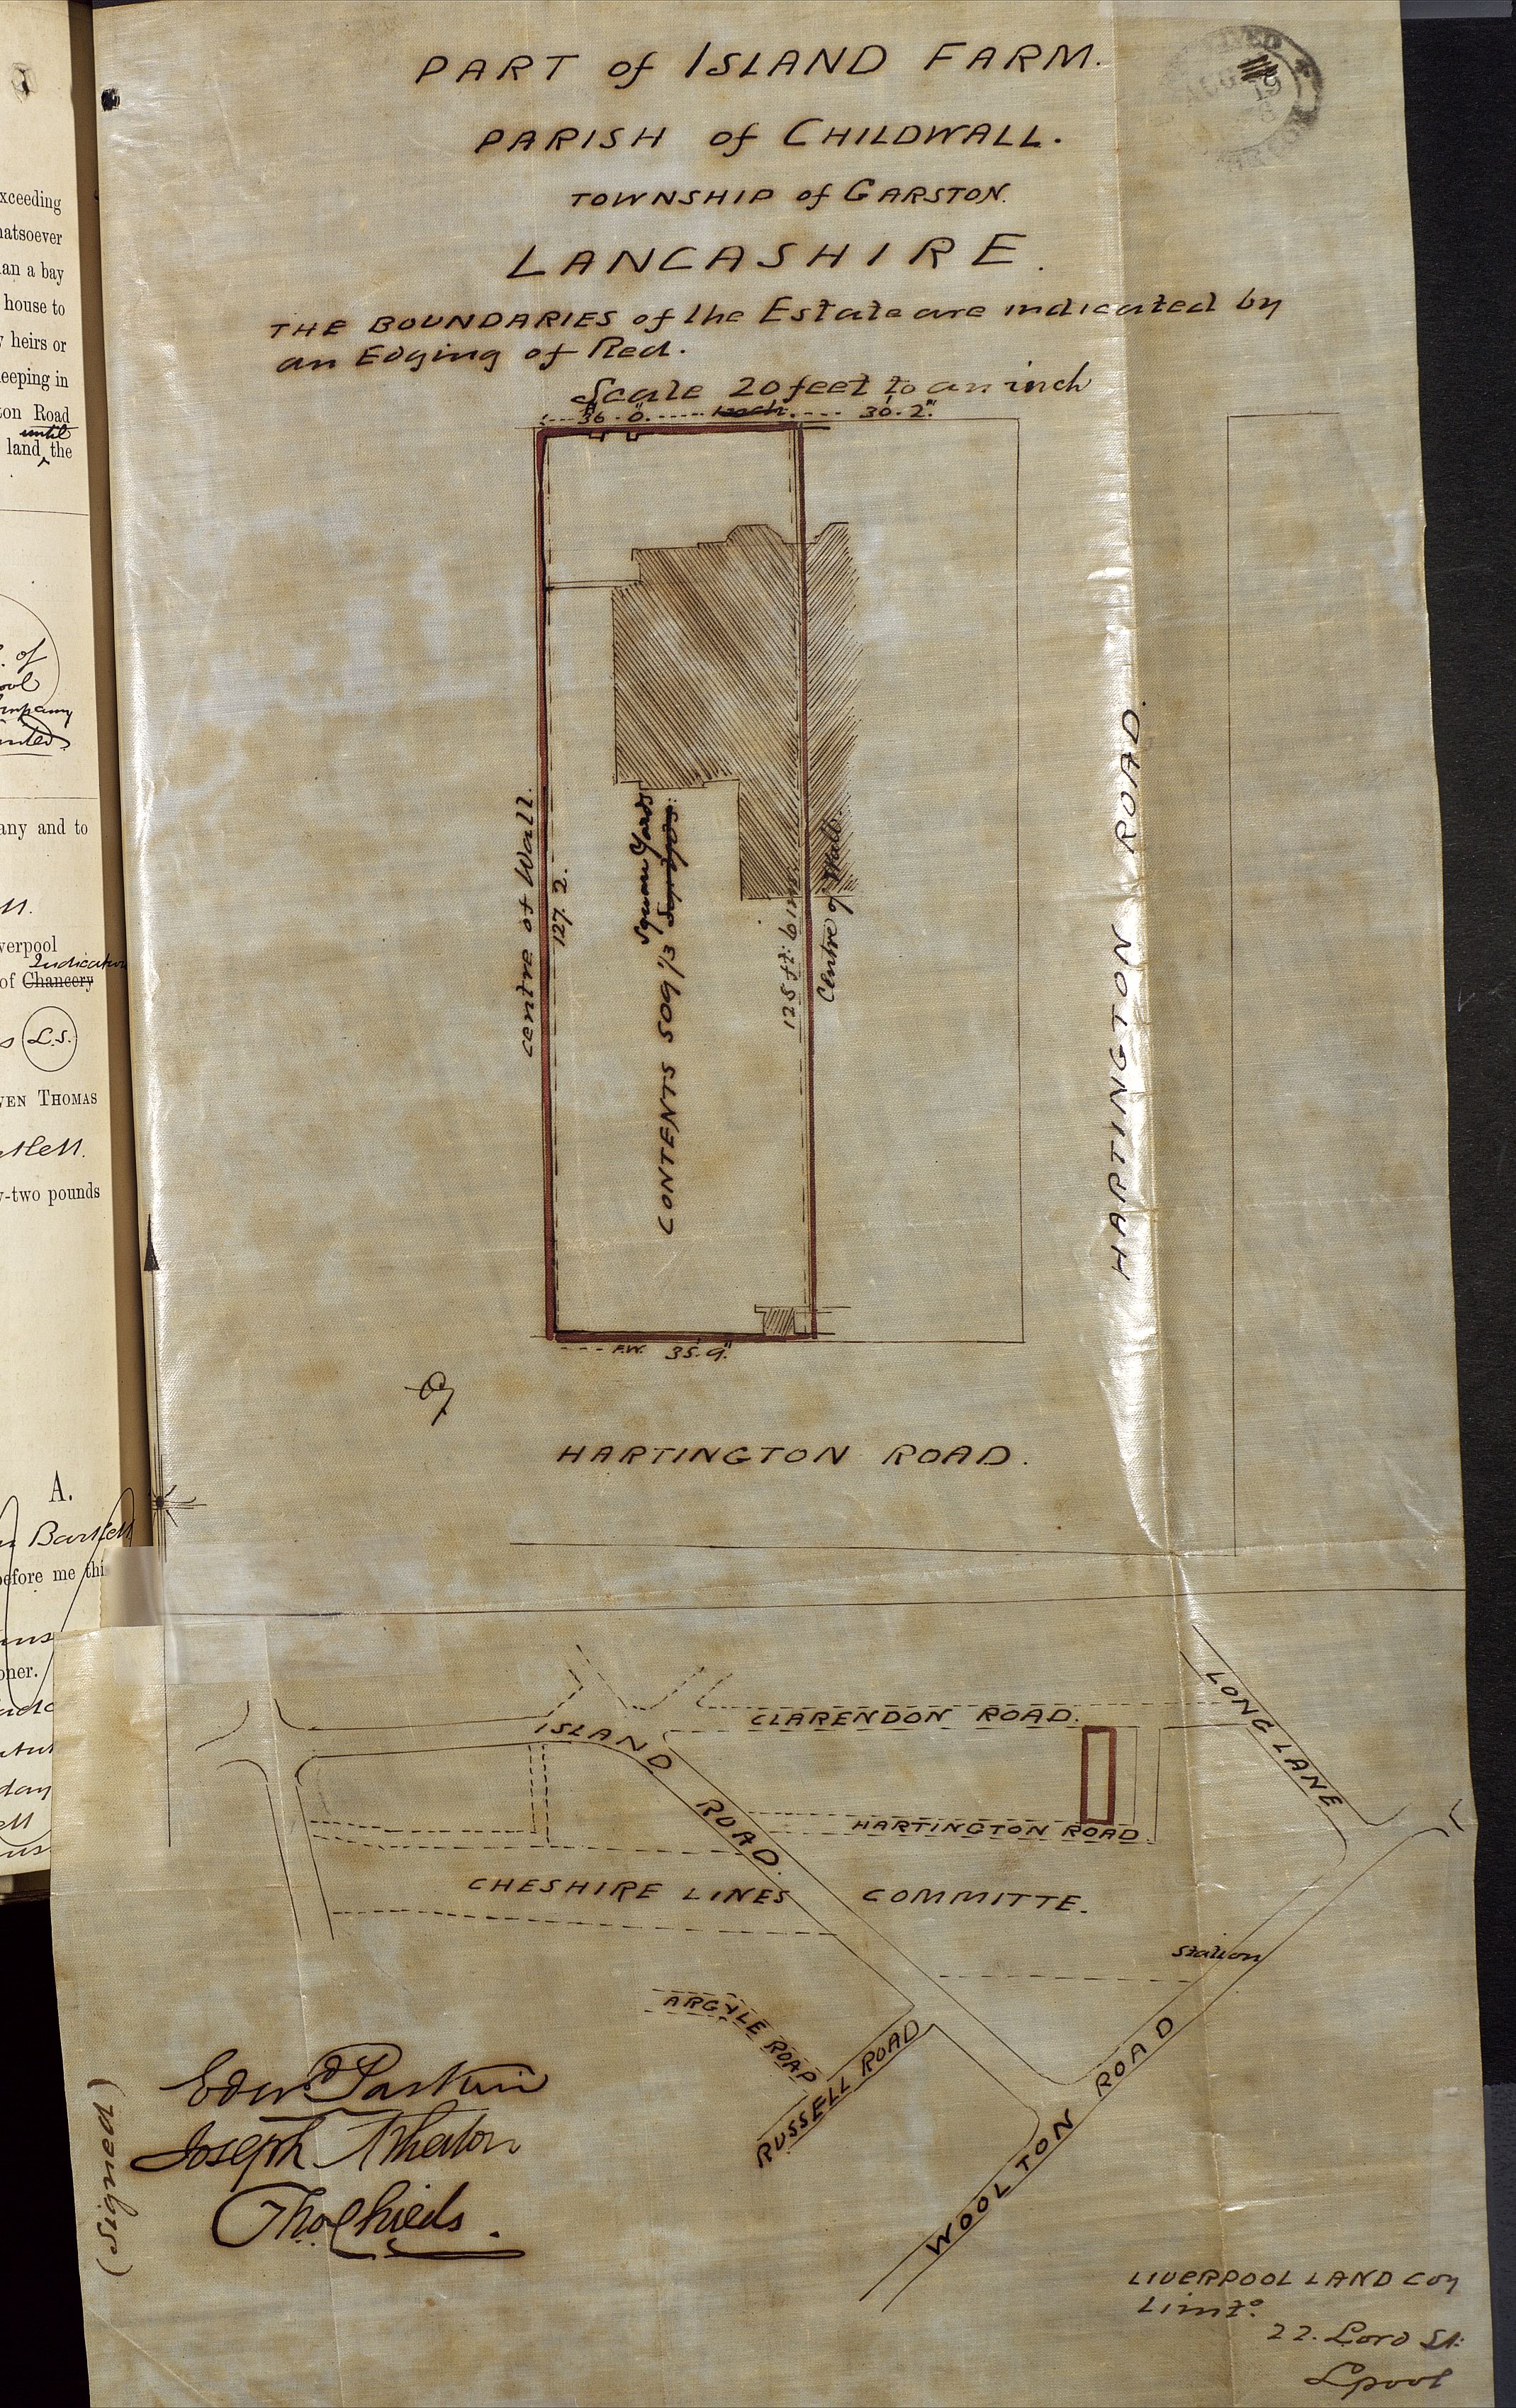 PART of ISLAND FARM.
PARISH of CHILDWALL.
TOWNSHIP of GARSTON.
LANCASHIRE.
THE BOUNDARIES of the Estate are indicated by
an Edging of Red.
Scale 20 feet to an inch
36. 0.
30. 2.
centre of Wall.
127. 2.
Square Yards
CONTENTS 509 1/3
125 ft: 6 ins
Centre of Wall.
F.W. 35. 9.
HARTINGTON ROAD.
HARTINGTON ROAD.
ISLAND ROAD.
CLARENDON ROAD.
LONG LANE
HARTINGTON ROAD
CHESHIRE LINES COMMITTE.
Station
ARGYLE ROAD
RUSSELL ROAD
WOOLTON ROAD
(Signed)
Joseph Atherton
LIVERPOOL LAND Coy
Limtd.
22. Lord St:
Lpool
xceeding
hatsoever
an a bay
house to
heirs or
eeping in
ton Road
until
land the
of
ool
ompany
mited
any and to
verpool
of Chancery
L.S.
VEN THOMAS
tlett.
y-two pounds
A.
Bartlett
before me thi
oner.
day